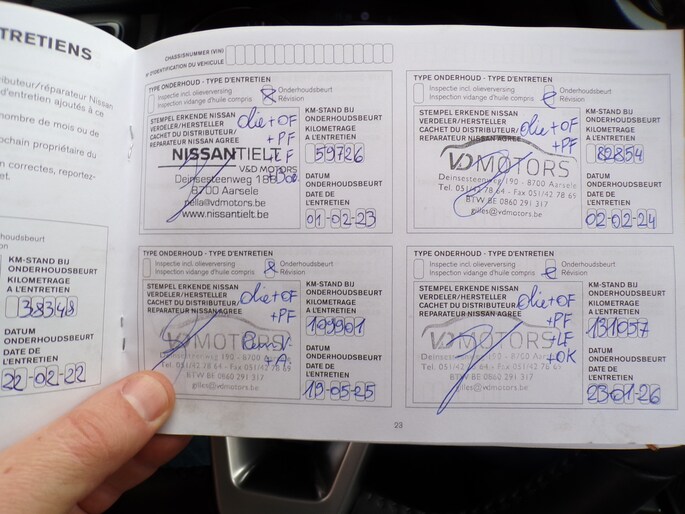 TRETIENS
ributeur/réparateur Nissan
d'entretien ajoutés à ce
nombre de mois ou de
ochain propriétaire du
n correctes, reportez-
et.
oudsbeurt
ion
KM-STAND BIJ
ONDERHOUDSBEURT
KILOMETRAGE
A L'ENTRETIEN
38348
DATUM
ONDERHOUDSBEURT
DATE DE
L'ENTRETIEN
22-02-22
CHASSISNUMMER (VIN)
N° D'IDENTIFICATION DU VÉHICULE
TYPE ONDERHOUD - TYPE D'ENTRETIEN
Inspectie incl. olieverversing
Inspection vidange d'huile compris
Onderhoudsbeurt
Révision
STEMPEL ERKENDE NISSAN
VERDELER/HERSTELLER
CACHET DU DISTRIBUTEUR/
REPARATEUR NISSAN AGREE
Olie + OF
+ PF
NISSANTIELT
V&D MOTORS
Deinsesteenweg
8700 Aarsele
www.nissantielt.be
KM-STAND BIJ
ONDERHOUDSBEURT
KILOMETRAGE
A L'ENTRETIEN
59726
DATUM
ONDERHOUDSBEURT
DATE DE
L'ENTRETIEN
01-02-23
TYPE ONDERHOUD - TYPE D'ENTRETIEN
Inspectie incl. olieverversing
Inspection vidange d'huile compris
Onderhoudsbeurt
Révision
STEMPEL ERKENDE NISSAN
VERDELER/HERSTELLER
CACHET DU DISTRIBUTEUR/
REPARATEUR NISSAN AGREE
Olie + OF
+ PF
VD MOTORS
Deinsesteenweg 190 - 8700 Aarsele
Tel. 051/42 78 64 - Fax 051/42 78 65
BTW BE 0860 291 317
gilles@vdmotors.be
KM-STAND BIJ
ONDERHOUDSBEURT
KILOMETRAGE
A L'ENTRETIEN
82854
DATUM
ONDERHOUDSBEURT
DATE DE
L'ENTRETIEN
02-02-24
TYPE ONDERHOUD - TYPE D'ENTRETIEN
Inspectie incl. olieverversing
Inspection vidange d'huile compris
Onderhoudsbeurt
Révision
STEMPEL ERKENDE NISSAN
VERDELER/HERSTELLER
CACHET DU DISTRIBUTEUR/
REPARATEUR NISSAN AGREE
Olie + OF
+ PF
VD MOTORS
190 - 8700
Tel. 051/42 78 64 - Fax 051/42 78 65
BTW BE 0860 291 317
gilles@vdmotors.be
KM-STAND BIJ
ONDERHOUDSBEURT
KILOMETRAGE
A L'ENTRETIEN
DATUM
ONDERHOUDSBEURT
DATE DE
L'ENTRETIEN
19-05-25
TYPE ONDERHOUD - TYPE D'ENTRETIEN
Inspectie incl. olieverversing
Inspection vidange d'huile compris
Onderhoudsbeurt
Révision
STEMPEL ERKENDE NISSAN
VERDELER/HERSTELLER
CACHET DU DISTRIBUTEUR/
REPARATEUR NISSAN AGREE
Olie + OF
+ PF
+ LF
+ OK
VD MOTORS
190 - 8700
Tel. 051/42 78 64 - Fax 051/42 78 65
BTW BE 0860 291 317
gilles@vdmotors.be
KM-STAND BIJ
ONDERHOUDSBEURT
KILOMETRAGE
A L'ENTRETIEN
131057
DATUM
ONDERHOUDSBEURT
DATE DE
L'ENTRETIEN
23-01-26
23